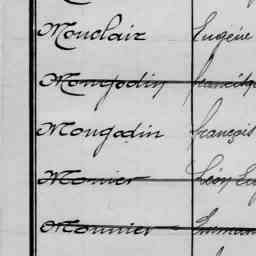 Monclair Eugène
Mongodin
Mongodin François
Monier Léon
Monnier